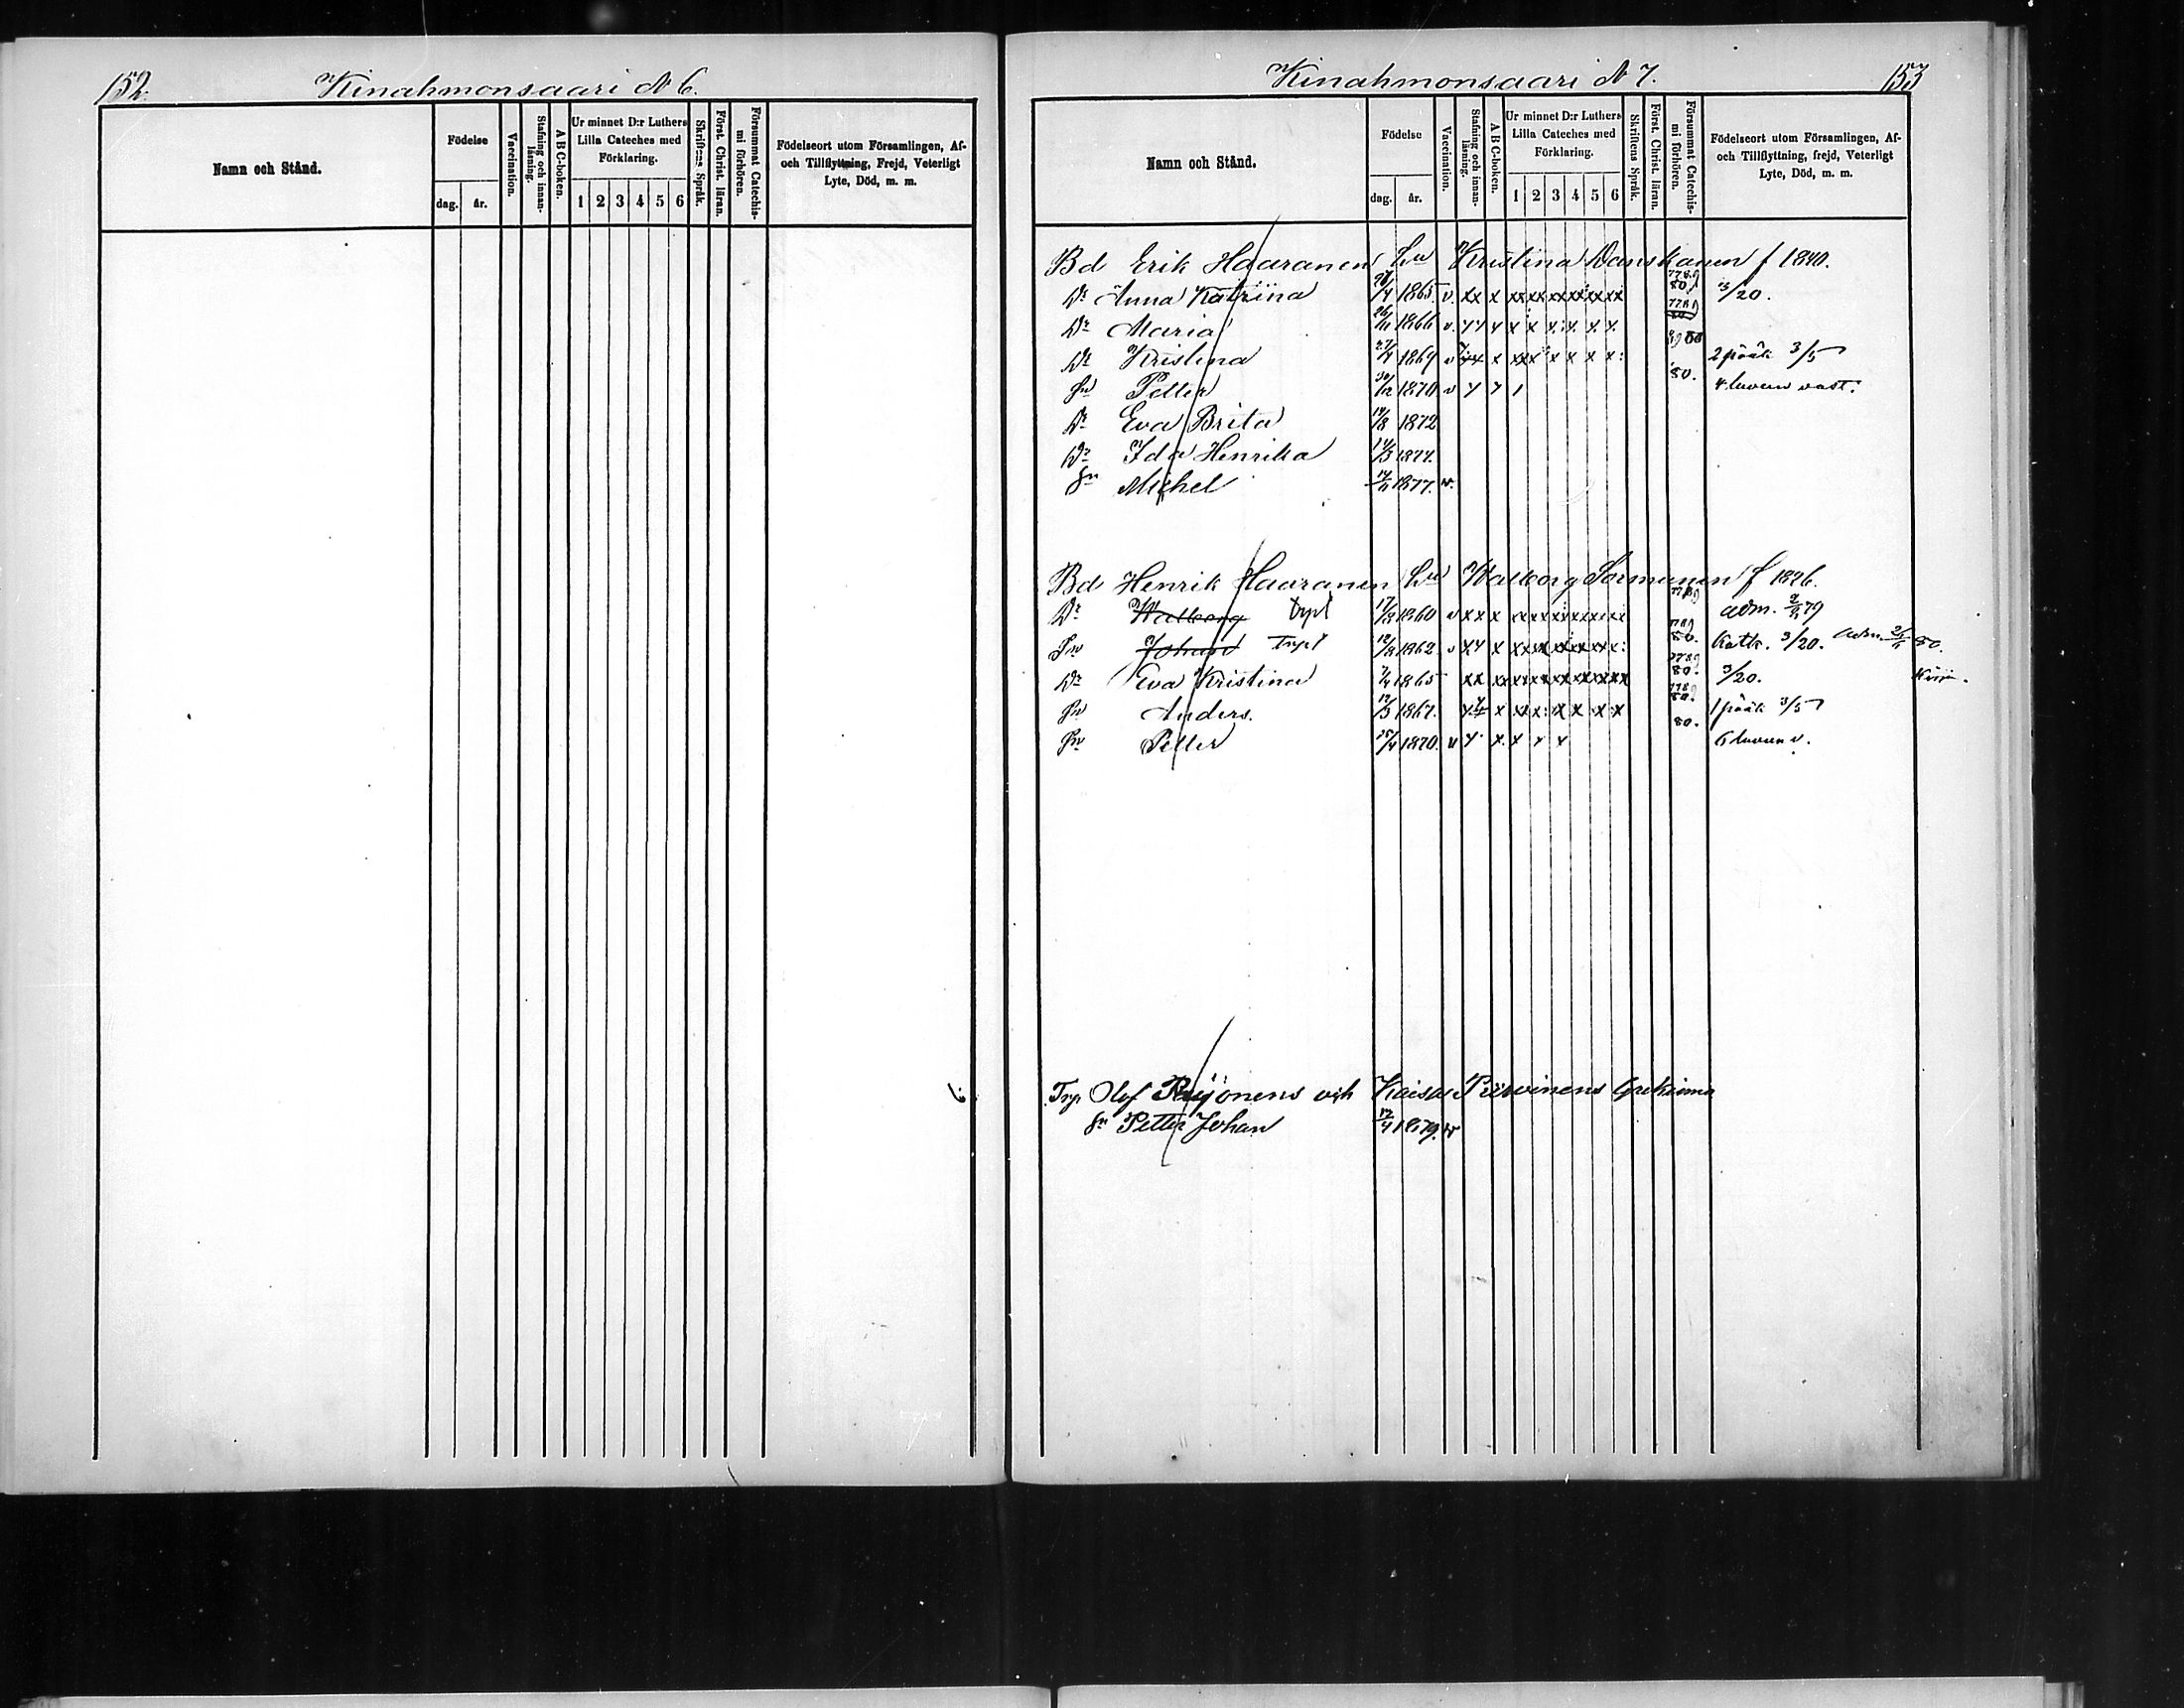 152.
Kinahmonsaari N 6.
Namn och Stånd.
Födelse
dag. år.
Vaccination.
Stafning och innanläsning.
A B C-boken.
Ur minnet D:r Luthers
Lilla Cateches med
Förklaring.
1 2 3 4 5 6
Skriftens Språk.
Först. Christ. läran.
Försummat Catechismi förhören.
Födelseort utom Församlingen, Af-
och Tillflyttning, Frejd, Veterligt
Lyte, Död, m. m.
Kinahmonsaari N 7.
153
Namn och Stånd.
Födelse
dag. år.
Vaccination.
Stafning och innanläsning.
A B C-boken.
Ur minnet D:r Luthers
Lilla Cateches med
Förklaring.
1 2 3 4 5 6
Skriftens Språk.
Först. Christ. läran.
Försummat Catechismi förhören.
Födelseort utom Församlingen, Af-
och Tillflyttning, frejd, Veterligt
Lyte, Död, m. m.
Bd Erik Haaranen Hu Kristina Danskanen f 1840.
Dr Anna Katrina 1865 v. xx x xx xx xx xx xx xx 80. 3/20.
Dr Maria 1866 v.
Dr Kristina 1869 v 2 pääk 3/5
Sn Petter 30/12 1870 v 80. 4 luvun vast.
Dr Eva Brita 14/8 1872
Dr Ida Henrika 1877.
Sn Michel 1877. v.
Bd Henrik Haaranen Hu Walborg Sormunen f 1826.
Dr Walborg 1860 v xx x adm. 79
Sn Johan 1862 v 80. Katk. 3/20. adm. 80.
Dr Eva Kristina 1865 xx 80. 3/20.
Sn Anders. 1867. 80. 1 pääk 3/5
Sn Petter 1870. v 80. 6 luvun v.
Olof Reijonens och Kaisa Piiroinens
Sn Petter Johan 1879. v